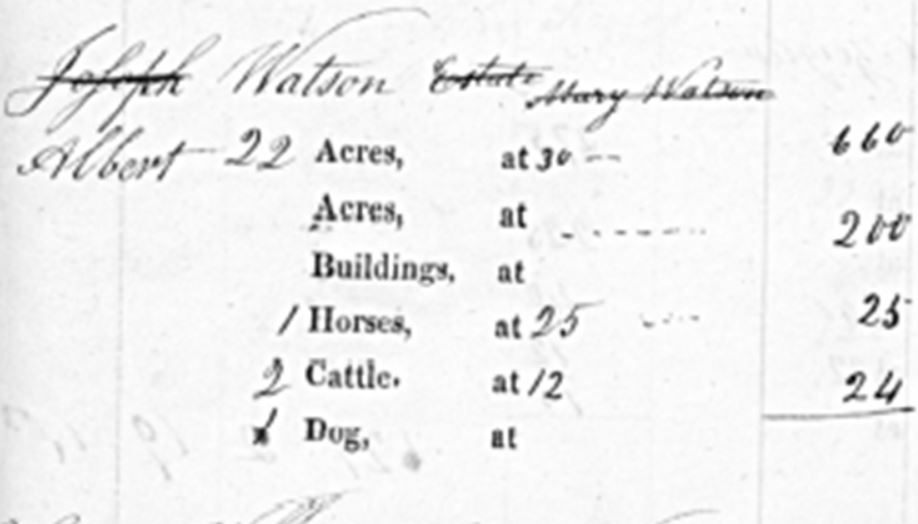 Joseph Watson Estate Mary Watson
Albert 22 Acres, at 30 -- 660
Acres, at ------- 200
Buildings, at
1 Horses, at 25 ---- 25
2 Cattle. at 12 24
1 Dog, at